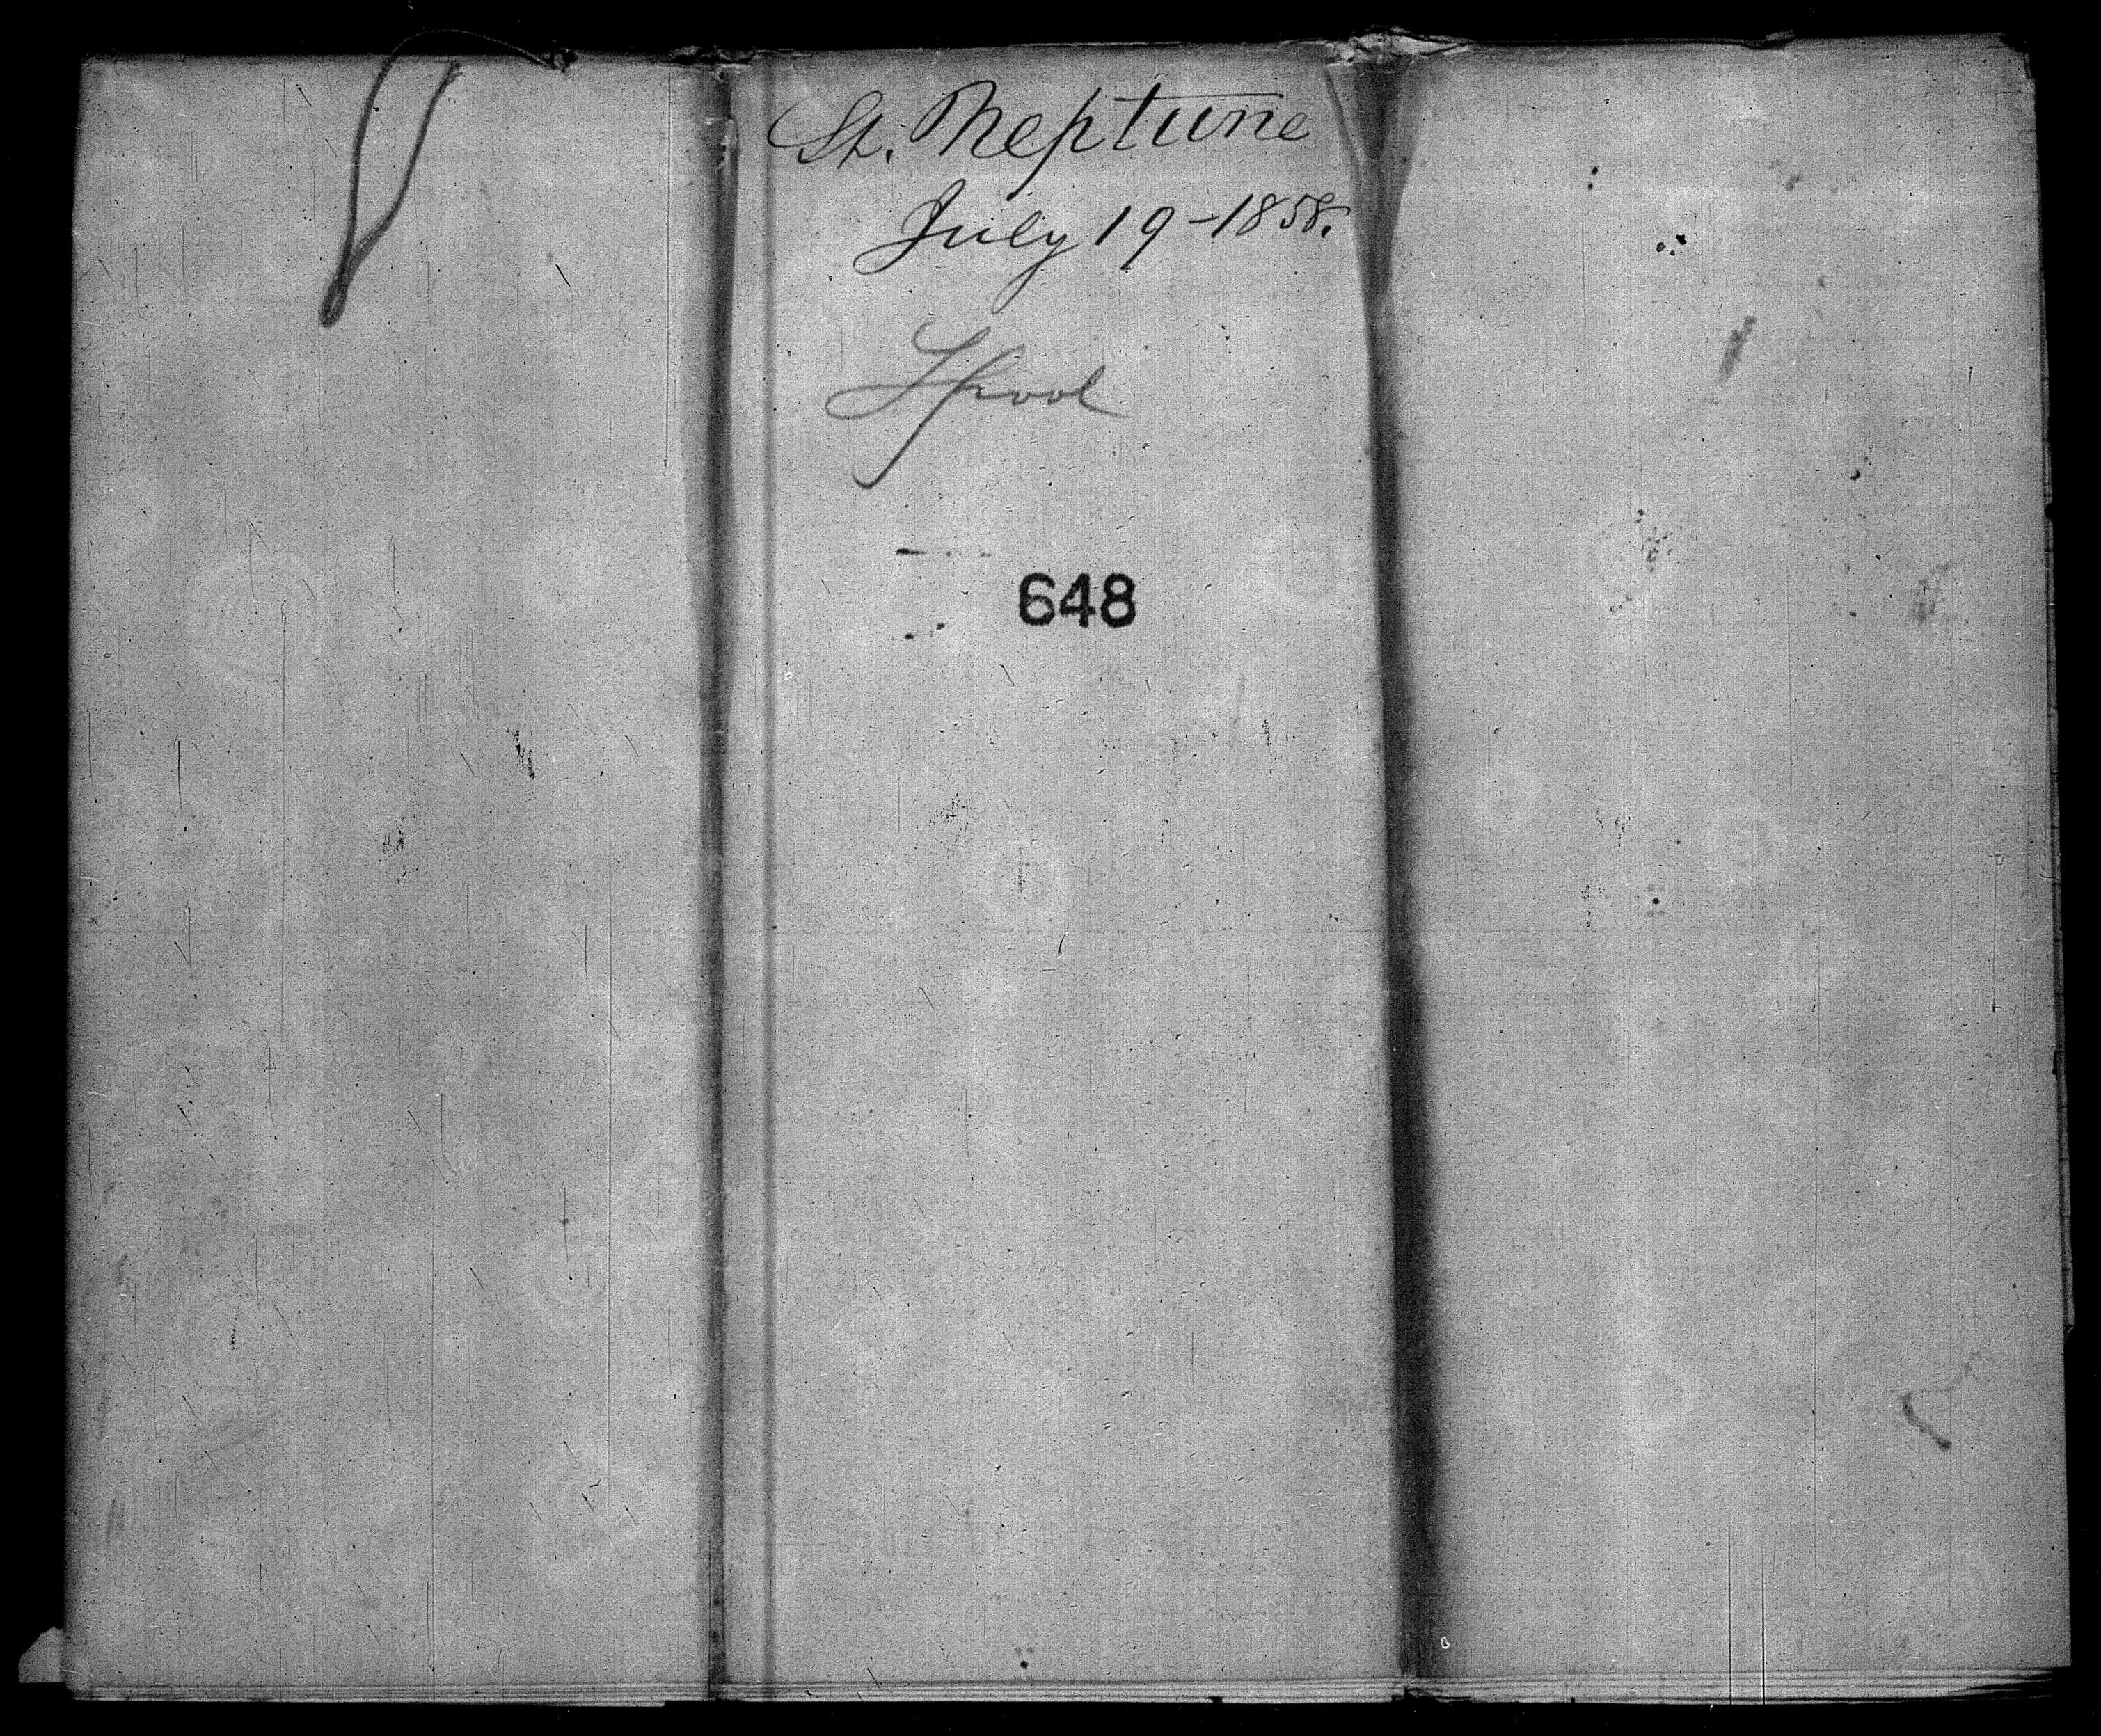 St. Neptune
July 19-1858.
Lpool
648